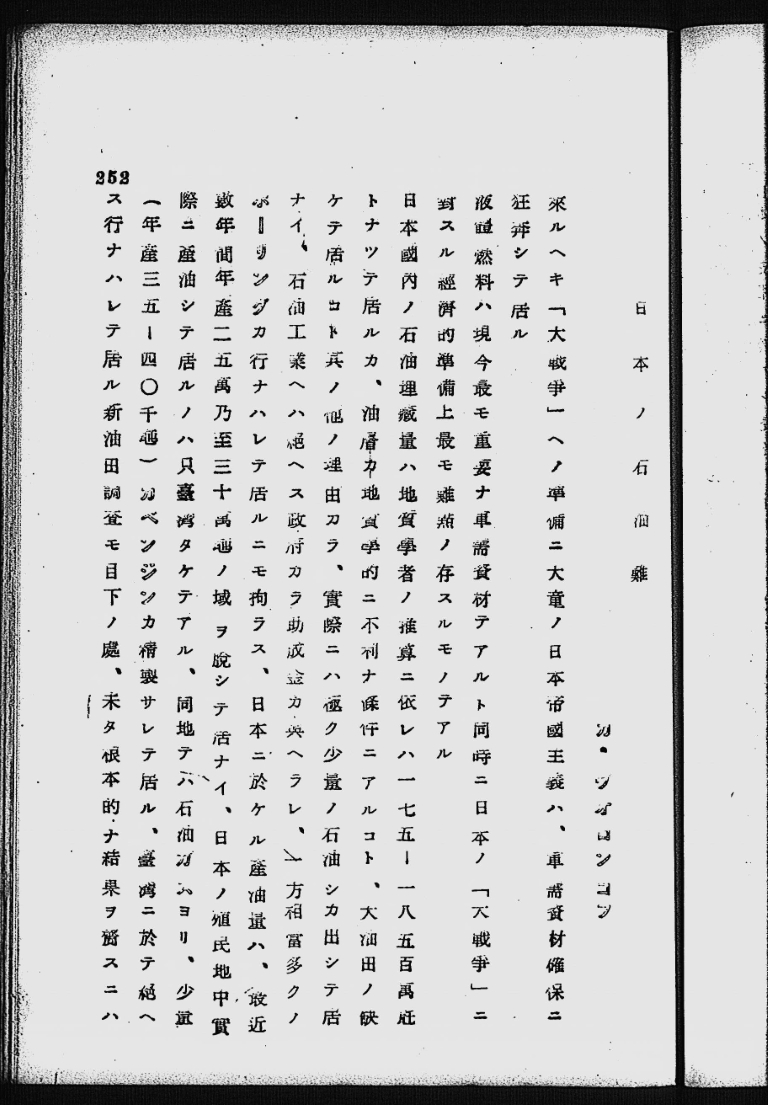 日本ノ石油難
ガ・ウオロンコフ
來ルヘキ「大戰爭」ヘノ準備ニ大童ノ日本帝國主義ハ、軍需資材確保ニ
狂奔シテ居ル
液體燃料ハ現今最モ重要ナ軍需資材テアルト同時ニ日本ノ「大戰爭」ニ
對スル經濟的準備上最モ難點ノ存スルモノテアル
日本國內ノ石油埋藏量ハ地質學者ノ推算ニ依レハ一七五ー一八五百萬瓩
トナツテ居ルカ、油層カ地質學的ニ不利ナ條件ニアルコト、大油田ノ缺
ケテ居ルコト其ノ他ノ理由カラ、實際ニハ極ク少量ノ石油シカ出シテ居
ナイ、石油工業ヘハ絕ヘス政府カラ助成金カ與ヘラレ、一方相當多クノ
ボーリングカ行ナハレテ居ルニモ拘ラス、日本ニ於ケル產油量ハ、最近
數年間年產二五萬乃至三十萬瓲ノ域ヲ脫シテ活ナイ、日本ノ殖民地中實
際ニ產油シテ居ルノハ只臺灣タケテアル、同地テハ石油ガスヨリ、少量
(年產三五ー四〇千瓲)ガベンジンカ精製サレテ居ル、臺灣ニ於テ絕ヘ
ス行ナハレテ居ル新油田調查モ目下ノ處、未タ根本的ナ結果ヲ齎スニハ
252